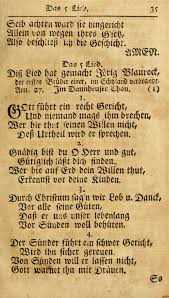 Das 5 Lied. 35
Selb achten ward sie hingericht
Allein von wegen ihres Gsetz,
Also beschließ ich die Geschicht.
AMEN.
Das 5 Lied.
Diß Lied hat gemacht Jörig Blaurock,
der erstes Brüder einer, im Etschland verbrannt
Ann. 27. Im Dannheuser Thon. (1)
1.
GOtt führt ein recht Gericht,
Und niemand mags ihm brechen,
Wer hie thut seinen Willen nicht,
Deß Urtheil wird er sprechen.
2.
Gnädig bist du O Herr und gut,
Gütiglich läßt dich finden,
Wer hie auf Erd dein Willen thut,
Erkennst vor deine Kinden.
3.
Durch Christum sag'n wir Lob u. Danck,
Vor alle seine Güten,
Daß er uns unser lebenlang
Vor Sünden woll behüten.
4.
Der Sünder führt ein schwer Gericht,
Wird ihn sicher gereuen
Von Sünden will er lassen nicht,
Gott warnet ihn mit Dräuen.
So